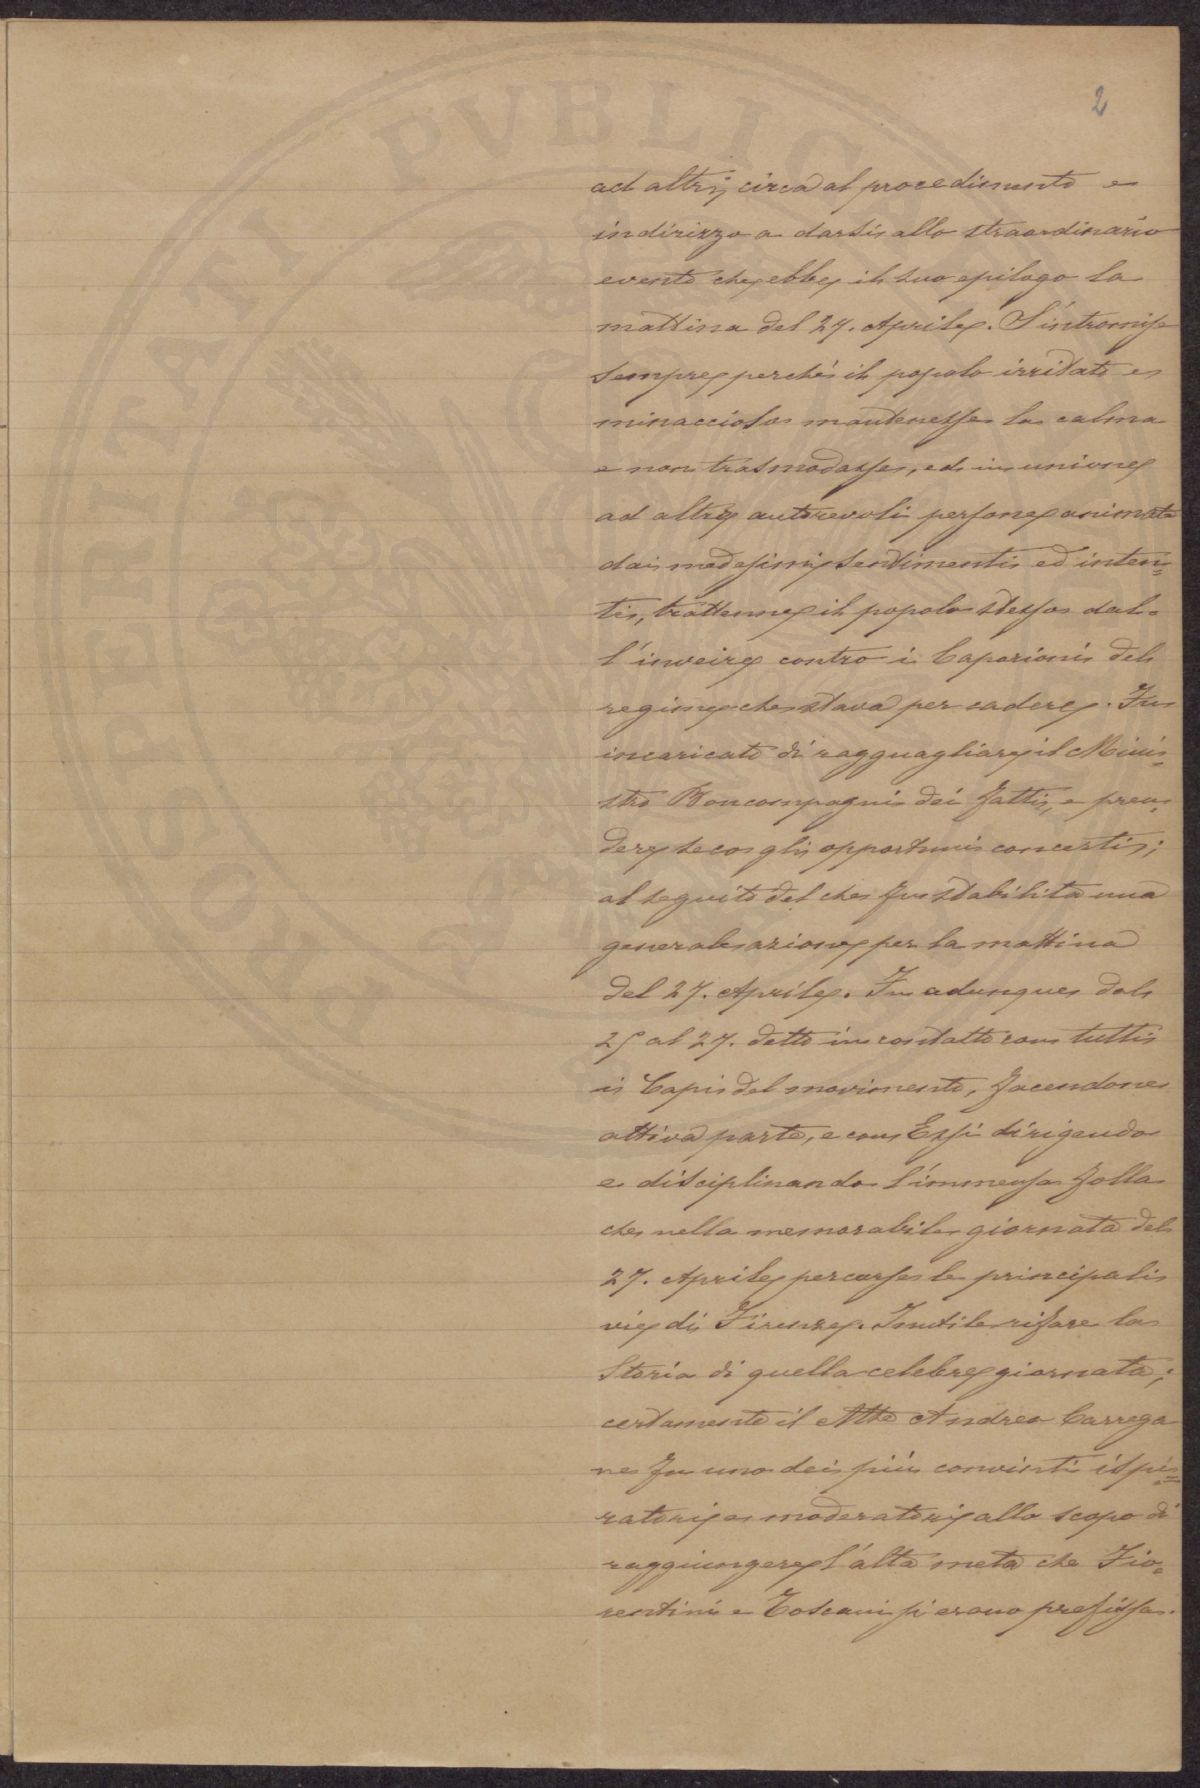 2
ad altri, circa al procedimento e
indirizzo a darsi allo straordinario
evento che ebbe il suo epilogo la
mattina del 27. Aprile. S'intromise
sempre perché il popolo irritato e
minaccioso mantenesse la calma
e non trasmodasse, ed in unione
ad altre autorevoli persone animate
dai medesimi sentimenti ed inten=
ti, trattenne il popolo stesso dal=
l'inveire contro i Caporioni del
regime che stava per cadere. Fu
incaricato di ragguagliare il Mini=
stro Boncompagni dei fatti, e pren=
dere seco gli opportuni concerti;
al seguito del che fu stabilita una
generale azione per la mattina
del 27. Aprile. Fu adunque dal
25 al 27. detto in contatto con tutti
i Capi del movimento, facendone
attiva parte, e con Essi dirigendo
e disciplinando l'immensa folla
che nella memorabile giornata del
27. Aprile percorse le principali
vie di Firenze. Inutile rifare la
Storia di quella celebre giornata;
certamente il Andrea Carrega
ne fu uno dei più convinti ispi=
ratori e moderatori allo scopo di
raggiungere l'alta meta che Fio=
rentini e Toscani si erano prefissa.
PVBLICA